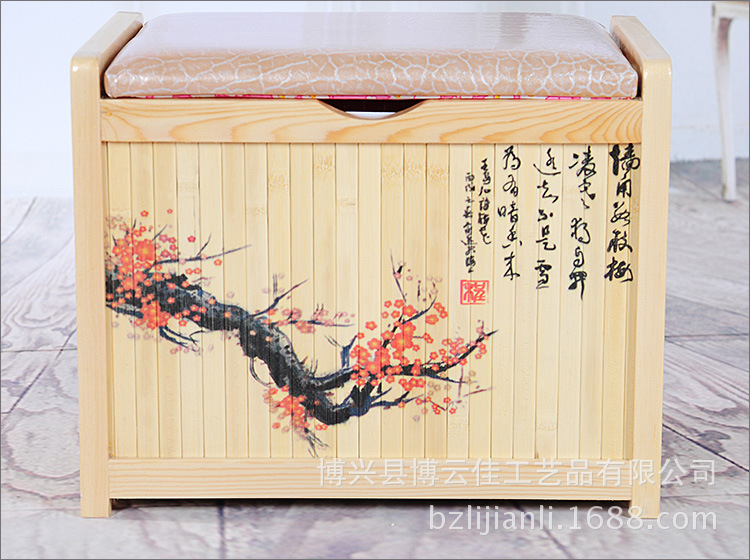 墙角数枝梅
凌寒独自开
遥知不是雪
为有暗香来
王安石诗梅花
博兴县博云佳工艺品有限公司
bzlijianli.1688.com